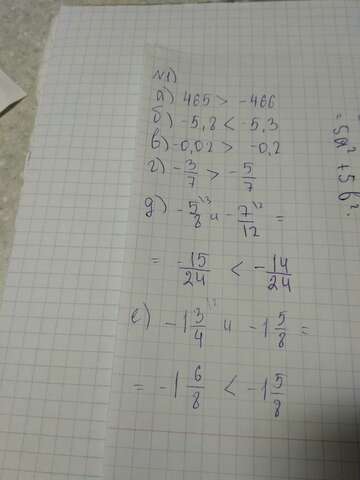 №1)
а) 465 > -466
б) -5,8 < -5,3
в) -0,02 > -0,2
г) -3/7 > -5/7
д) -5/8 и -7/12 =
= -15/24 < -14/24
е) -1 3/4 и -1 5/8 =
= -1 6/8 < -1 5/8
= 5a² + 5b².